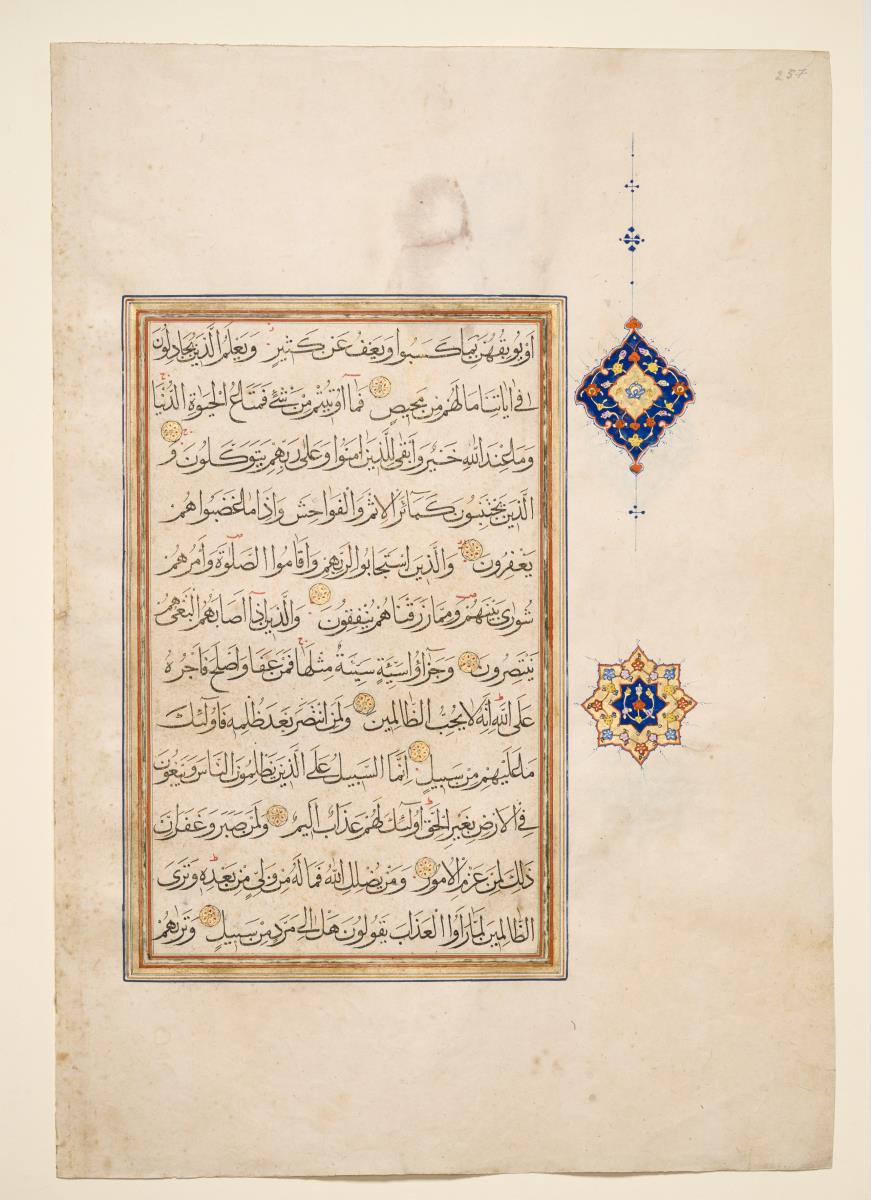 257
أَوْ يُوبِقْهُنَّ بِمَا كَسَبُوا وَيَعْفُ عَنْ كَثِيرٍ وَيَعْلَمَ الَّذِينَ يُجَادِلُونَ
فِي اٰيَاتِنَا مَا لَهُمْ مِنْ مَحِيصٍ فَمَا اُوتِيتُمْ مِنْ شَيْءٍ فَمَتَاعُ الْحَيٰوةِ الدُّنْيَا
وَمَا عِنْدَ اللهِ خَيْرٌ وَأَبْقٰى لِلَّذِينَ اٰمَنُوا وَعَلٰى رَبِّهِمْ يَتَوَكَّلُونَ وَ
الَّذِينَ يَجْتَنِبُونَ كَبَائِرَ الْاِثْمِ وَالْفَوَاحِشَ وَاِذَا مَا غَضِبُوا هُمْ
يَغْفِرُونَ وَالَّذِينَ اسْتَجَابُوا لِرَبِّهِمْ وَأَقَامُوا الصَّلٰوةَ وَأَمْرُهُمْ
شُورٰى بَيْنَهُمْ وَمِمَّا رَزَقْنَاهُمْ يُنْفِقُونَ وَالَّذِينَ اِذَا أَصَابَهُمُ الْبَغْيُ هُمْ
يَنْتَصِرُونَ وَجَزَاؤُا سَيِّئَةٍ سَيِّئَةٌ مِثْلُهَا فَمَنْ عَفَا وَأَصْلَحَ فَأَجْرُهُ
عَلَى اللهِ اِنَّهُ لَا يُحِبُّ الظَّالِمِينَ وَلَمَنِ انْتَصَرَ بَعْدَ ظُلْمِهِ فَاُولٰئِكَ
مَا عَلَيْهِمْ مِنْ سَبِيلٍ اِنَّمَا السَّبِيلُ عَلَى الَّذِينَ يَظْلِمُونَ النَّاسَ وَيَبْغُونَ
فِي الْاَرْضِ بِغَيْرِ الْحَقِّ اُولٰئِكَ لَهُمْ عَذَابٌ اَلِيمٌ وَلَمَنْ صَبَرَ وَغَفَرَ اِنَّ
ذٰلِكَ لَمِنْ عَزْمِ الْاُمُورِ وَمَنْ يُضْلِلِ اللهُ فَمَا لَهُ مِنْ وَلِيٍّ مِنْ بَعْدِهِ وَتَرَى
الظَّالِمِينَ لَمَّا رَأَوُا الْعَذَابَ يَقُولُونَ هَلْ اِلٰى مَرَدٍّ مِنْ سَبِيلٍ وَتَرٰيهُمْ